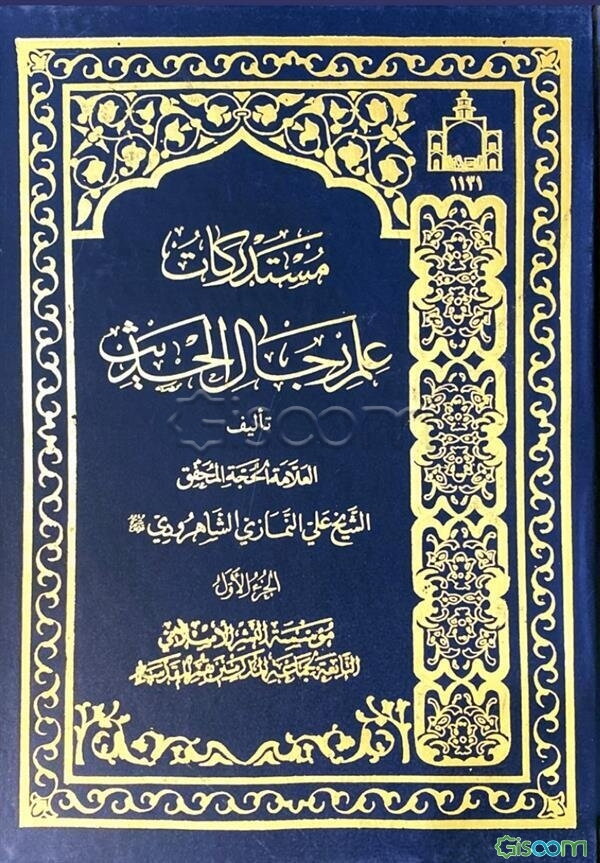 ١١٣١
مُسْتَدْرَكَاتُ
عِلْمِ رِجَالِ الْحَدِيثِ
تأليف
العَلّامَة الحُجّة المُحَقِّق
الشَّيْخ عَلي النَّمَازي الشَّاهرودي
الجُزءُ الأوّل
مؤسسة النشر الإسلامي
التابعة لجماعة المدرسين بقم المقدسة
Giscom
Giscom